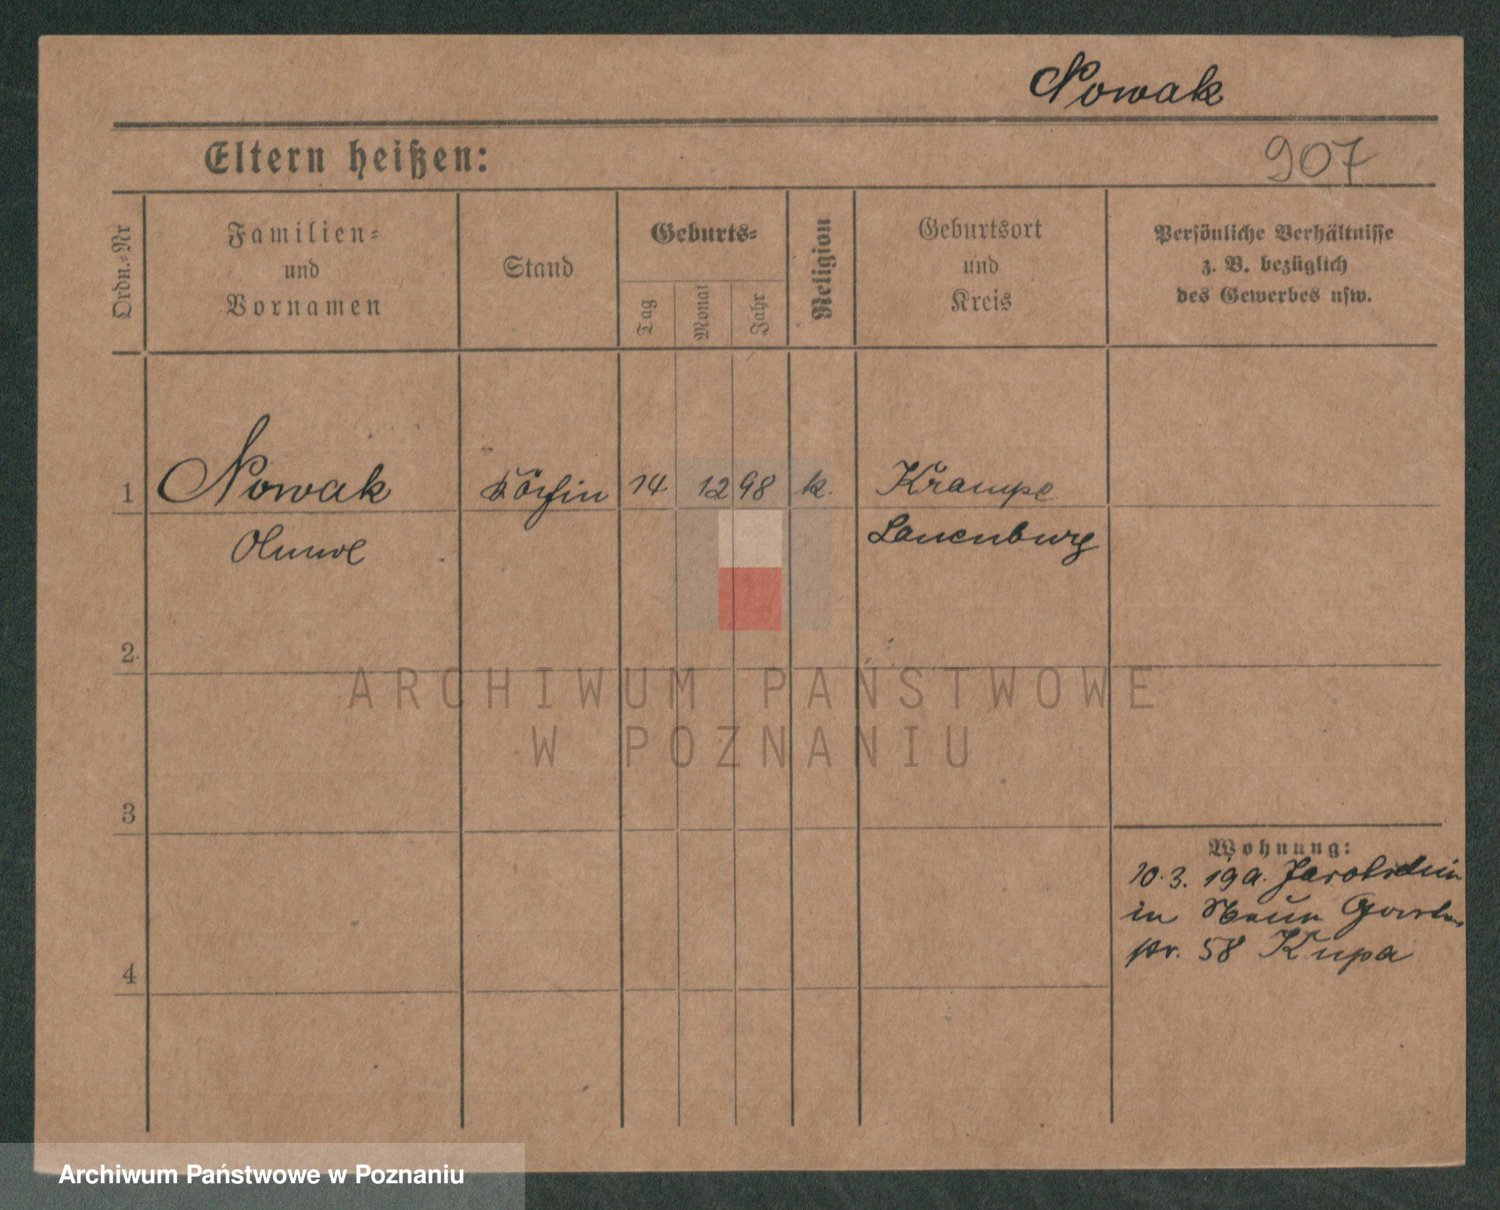 Nowak
Eltern heißen:
907
Ordn.-Nr
Familien-
und
Vornamen
Stand
Geburts-
Tag
Monat
Jahr
Religion
Geburtsort
und
Kreis
Persönliche Verhältnisse
z. B. bezüglich
des Gewerbes usw.
1 Nowak 14 12 98 k. Krampe
Lauenburg
2
ARCHIWUM PAŃSTWOWE
W POZNANIU
3
Wohnung:
10.3.19 a.
in
58 Kupa
4
Archiwum Państwowe w Poznaniu